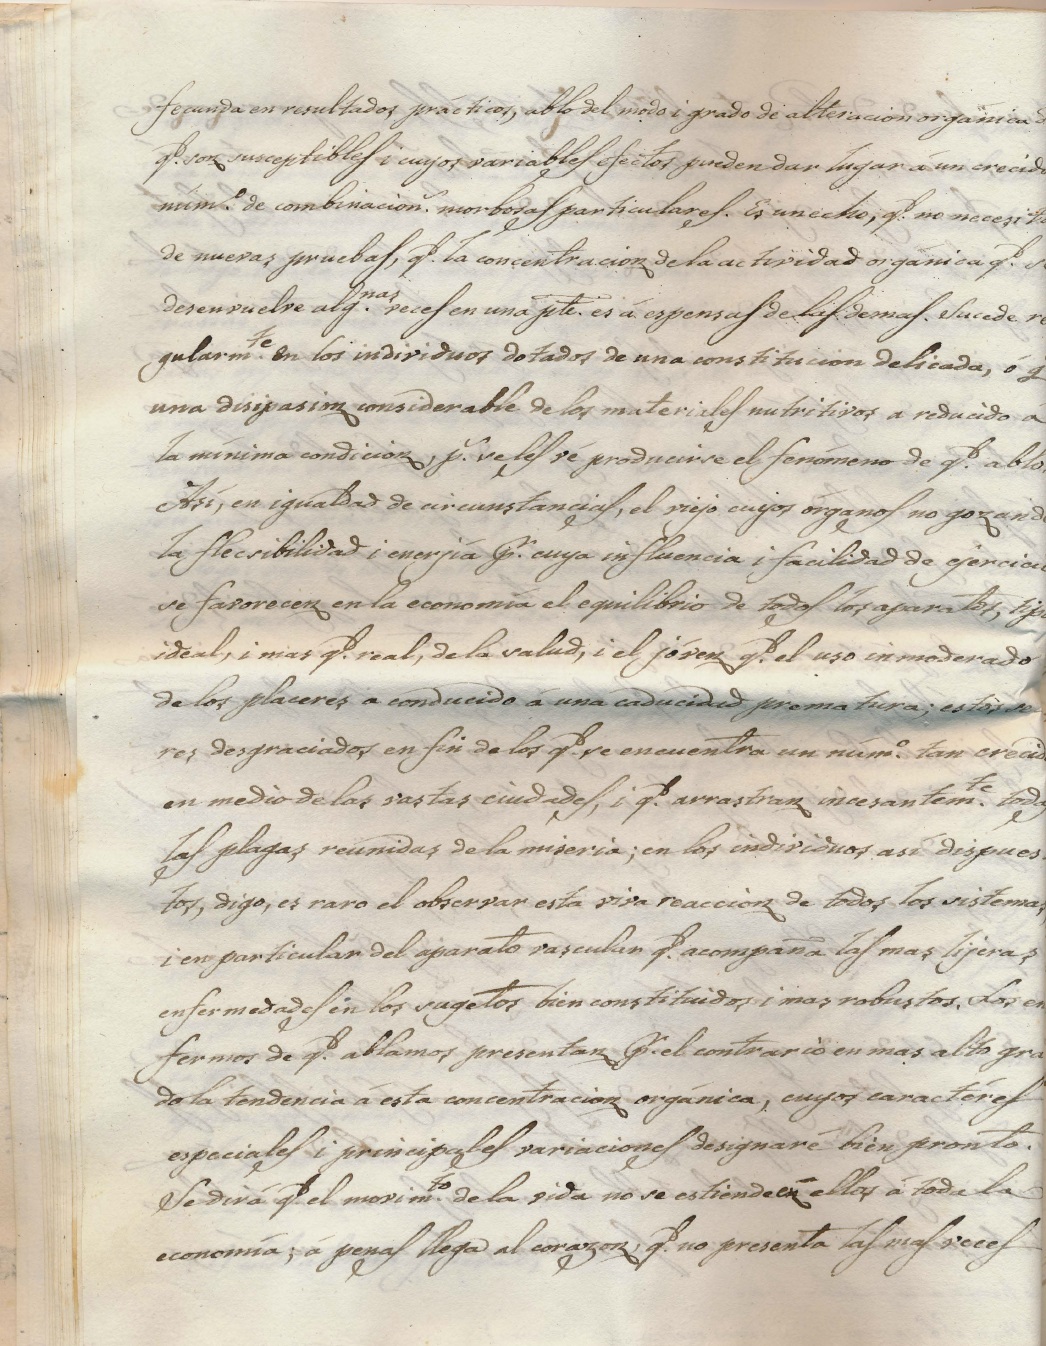 fecunda en resultados prácticos, ablo del modo i grado de alteracion orgánica d
qᵉ. son susceptibles i cuyos variables efectos pueden dar lugar á un crecido
númº. de combinacion.ˢ morbosas particulares. Es un echo, qᵉ. no necesita
de nuevas pruebas, qᵉ. la concentracion de la actividad orgánica qᵉ. se
desenvuelve alg.ⁿᵃˢ veces en una pte. es á espensas de las demas. Sucede re
gularm.ᵗᵉ en los individuos dotados de una constitucion delicada, ó q
una disipasion considerable de los materiales nutritivos a reducido á
la mínima condicion, pˢ. se les vé producirse el fenómeno de qᵉ. ablo.
Así, en igualdad de circunstancias, el viejo cuyos órganos no gozando
la flecsibilidad i enerjía pʳ. cuya influencia i facilidad de ejercicio
se favorecen en la economía el equilibrio de todos los aparatos, tipo
ideal, i mas qᵉ. real, de la salud, i el jóven qᵉ. el uso inmoderado
de los placeres a conducido á una caducidad prematura; estos se
res desgraciados en fin de los qᵉ. se encuentra un númº. tan crecido
en medio de las vastas ciudades, i qᵉ. arrastran incesantem.ᵗᵉ todas
las plagas reunidas de la miseria; en los individuos así dispues
tos, digo, es raro el observar esta viva reaccion de todos los sistemas,
i en particular del aparato vascular qᵉ. acompaña las mas lijeras
enfermedades en los sugetos bien constituidos i mas robustos. Los en
fermos de qᵉ. ablamos presentan pʳ. el contrario en mas alto gra
do la tendencia á esta concentracion orgánica, cuyos caractéres
especiales i principales variaciones designaré bien pronto.
Se dirá qᵉ. el movim.ᵗᵒ de la vida no se estiende en ellos á toda la
economía; á penas llega al corazon, qᵉ. no presenta las mas veces